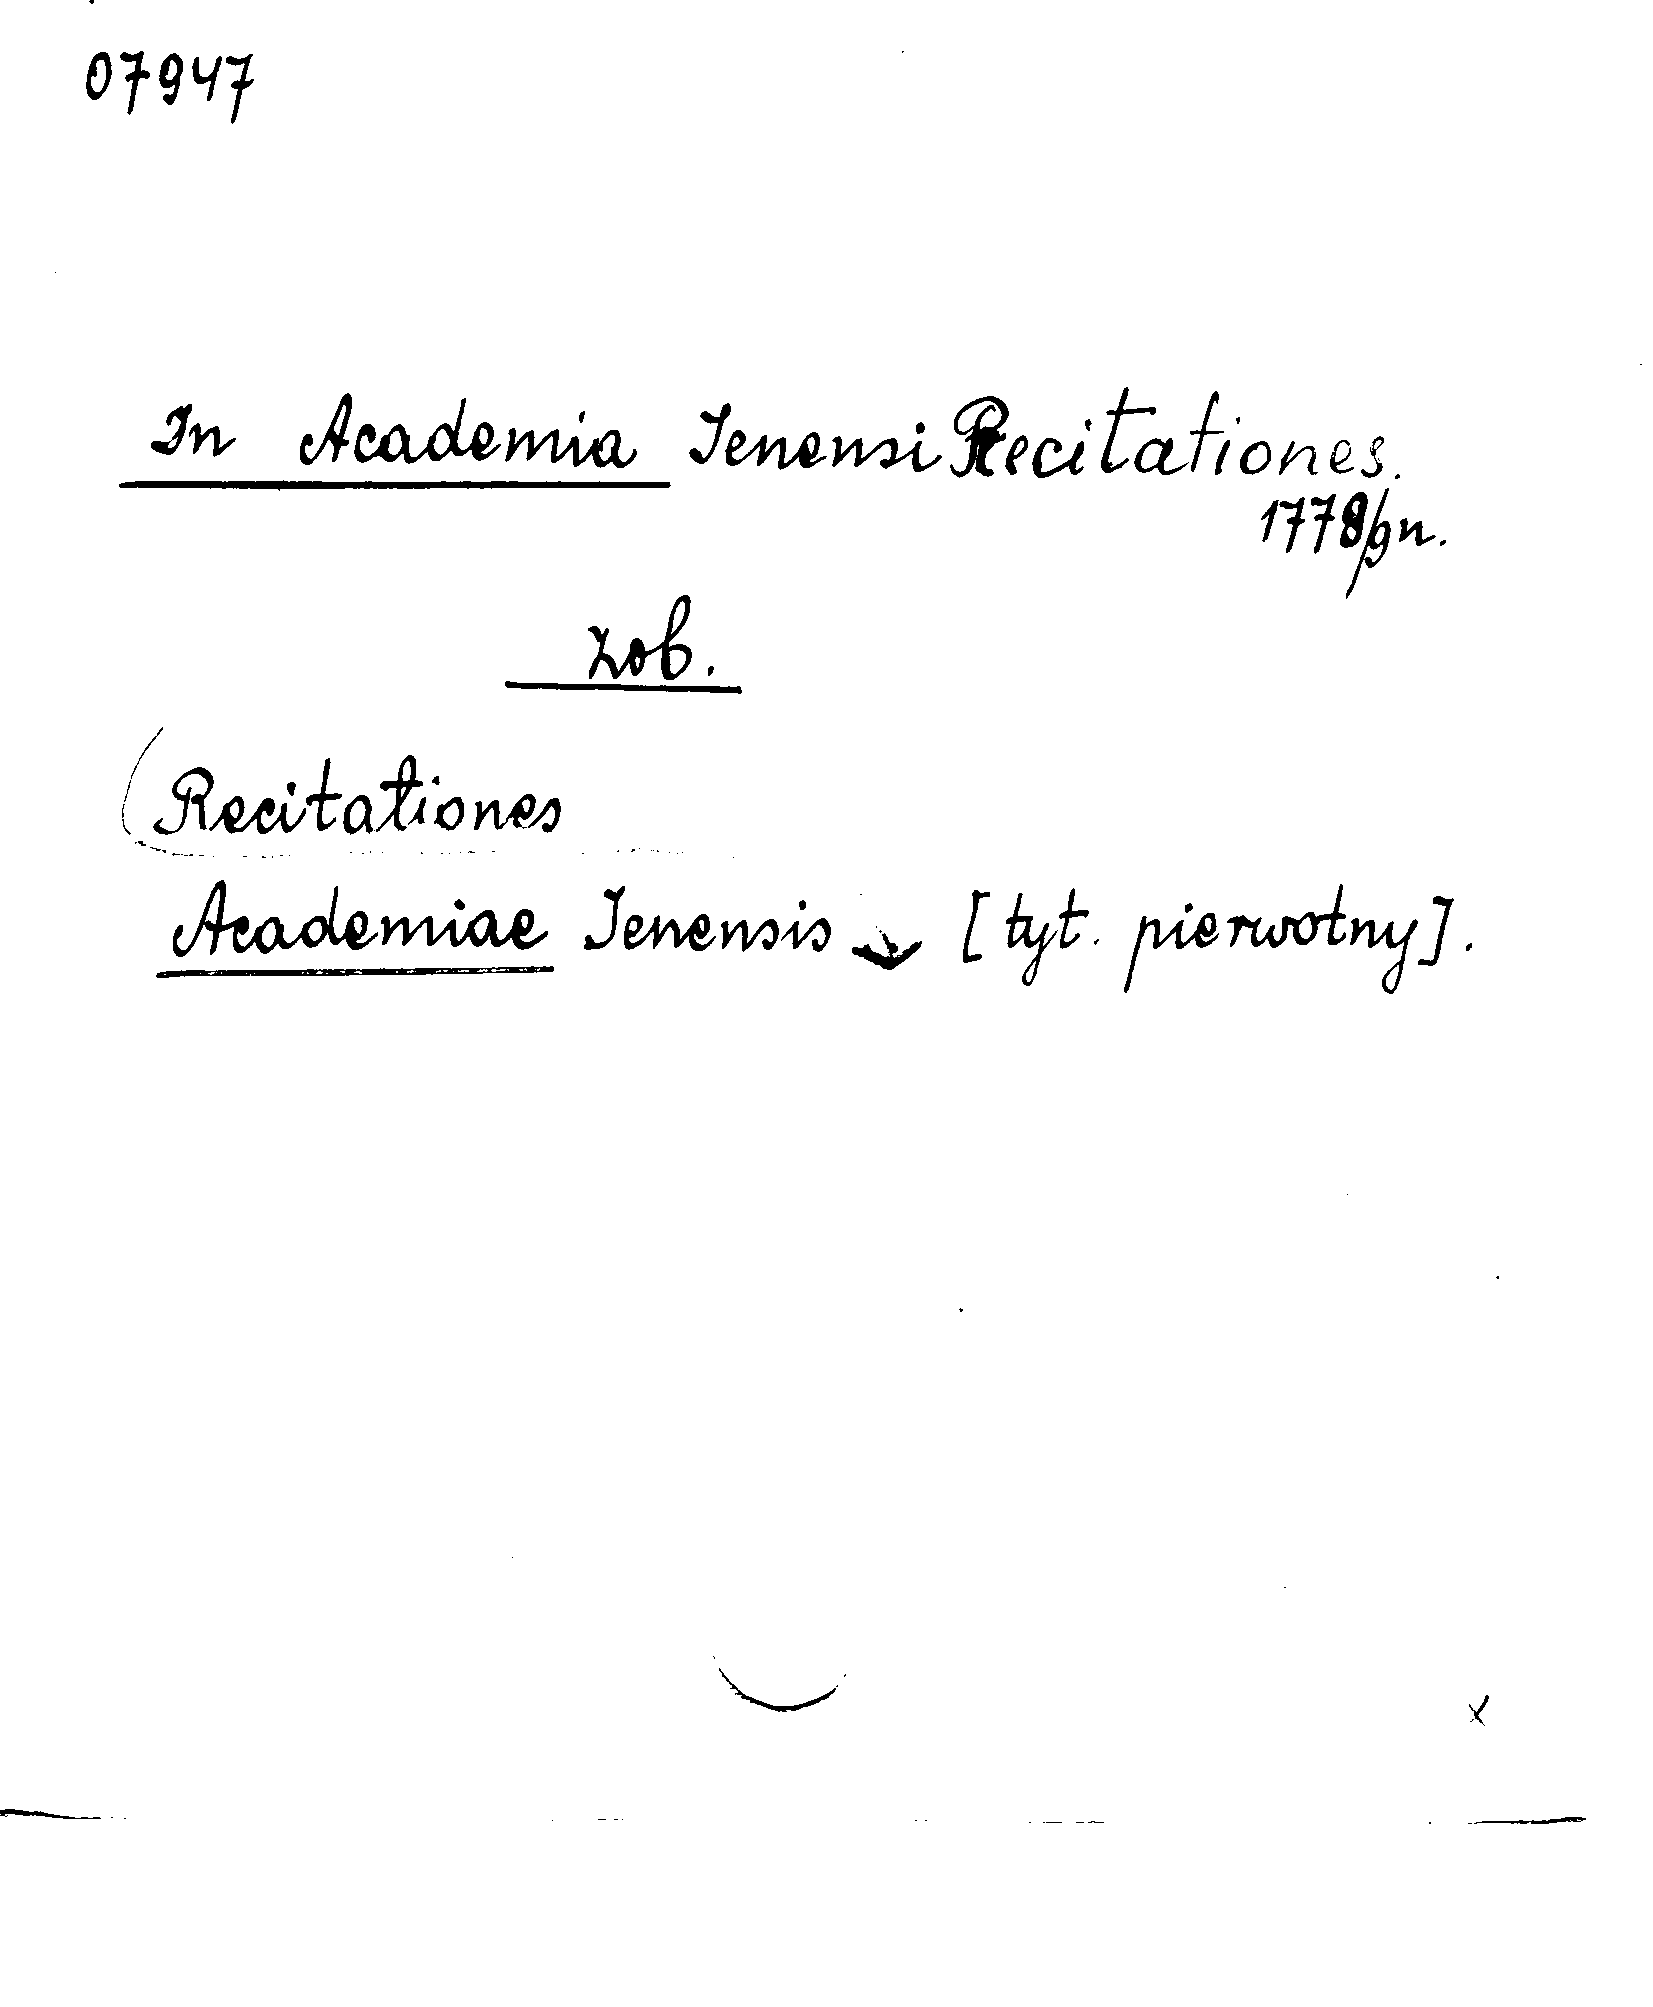 07947
In Academia Ienensi Recitationes.
1778/9 n.
zob.
Recitationes
Academiae Ienensis [tyt. pierwotny].
x